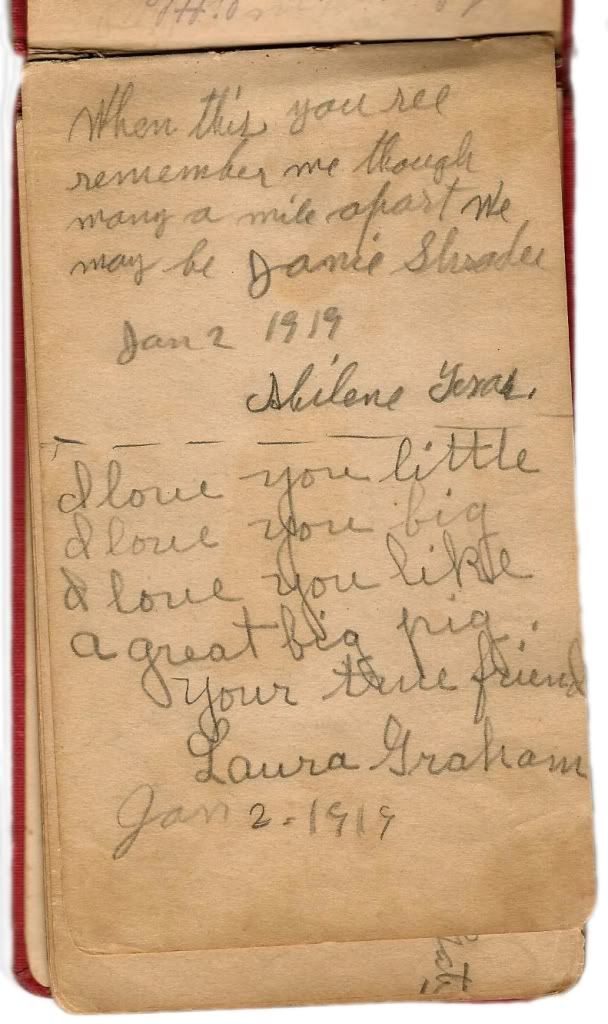 When this you see
remember me though
many a mile apart we
may be Janie Shrader
Jan 2 1919
Abilene Texas.
I love you little
I love you big
I love you like
a great big pig.
Your true friend
Laura Graham
Jan 2. 1919